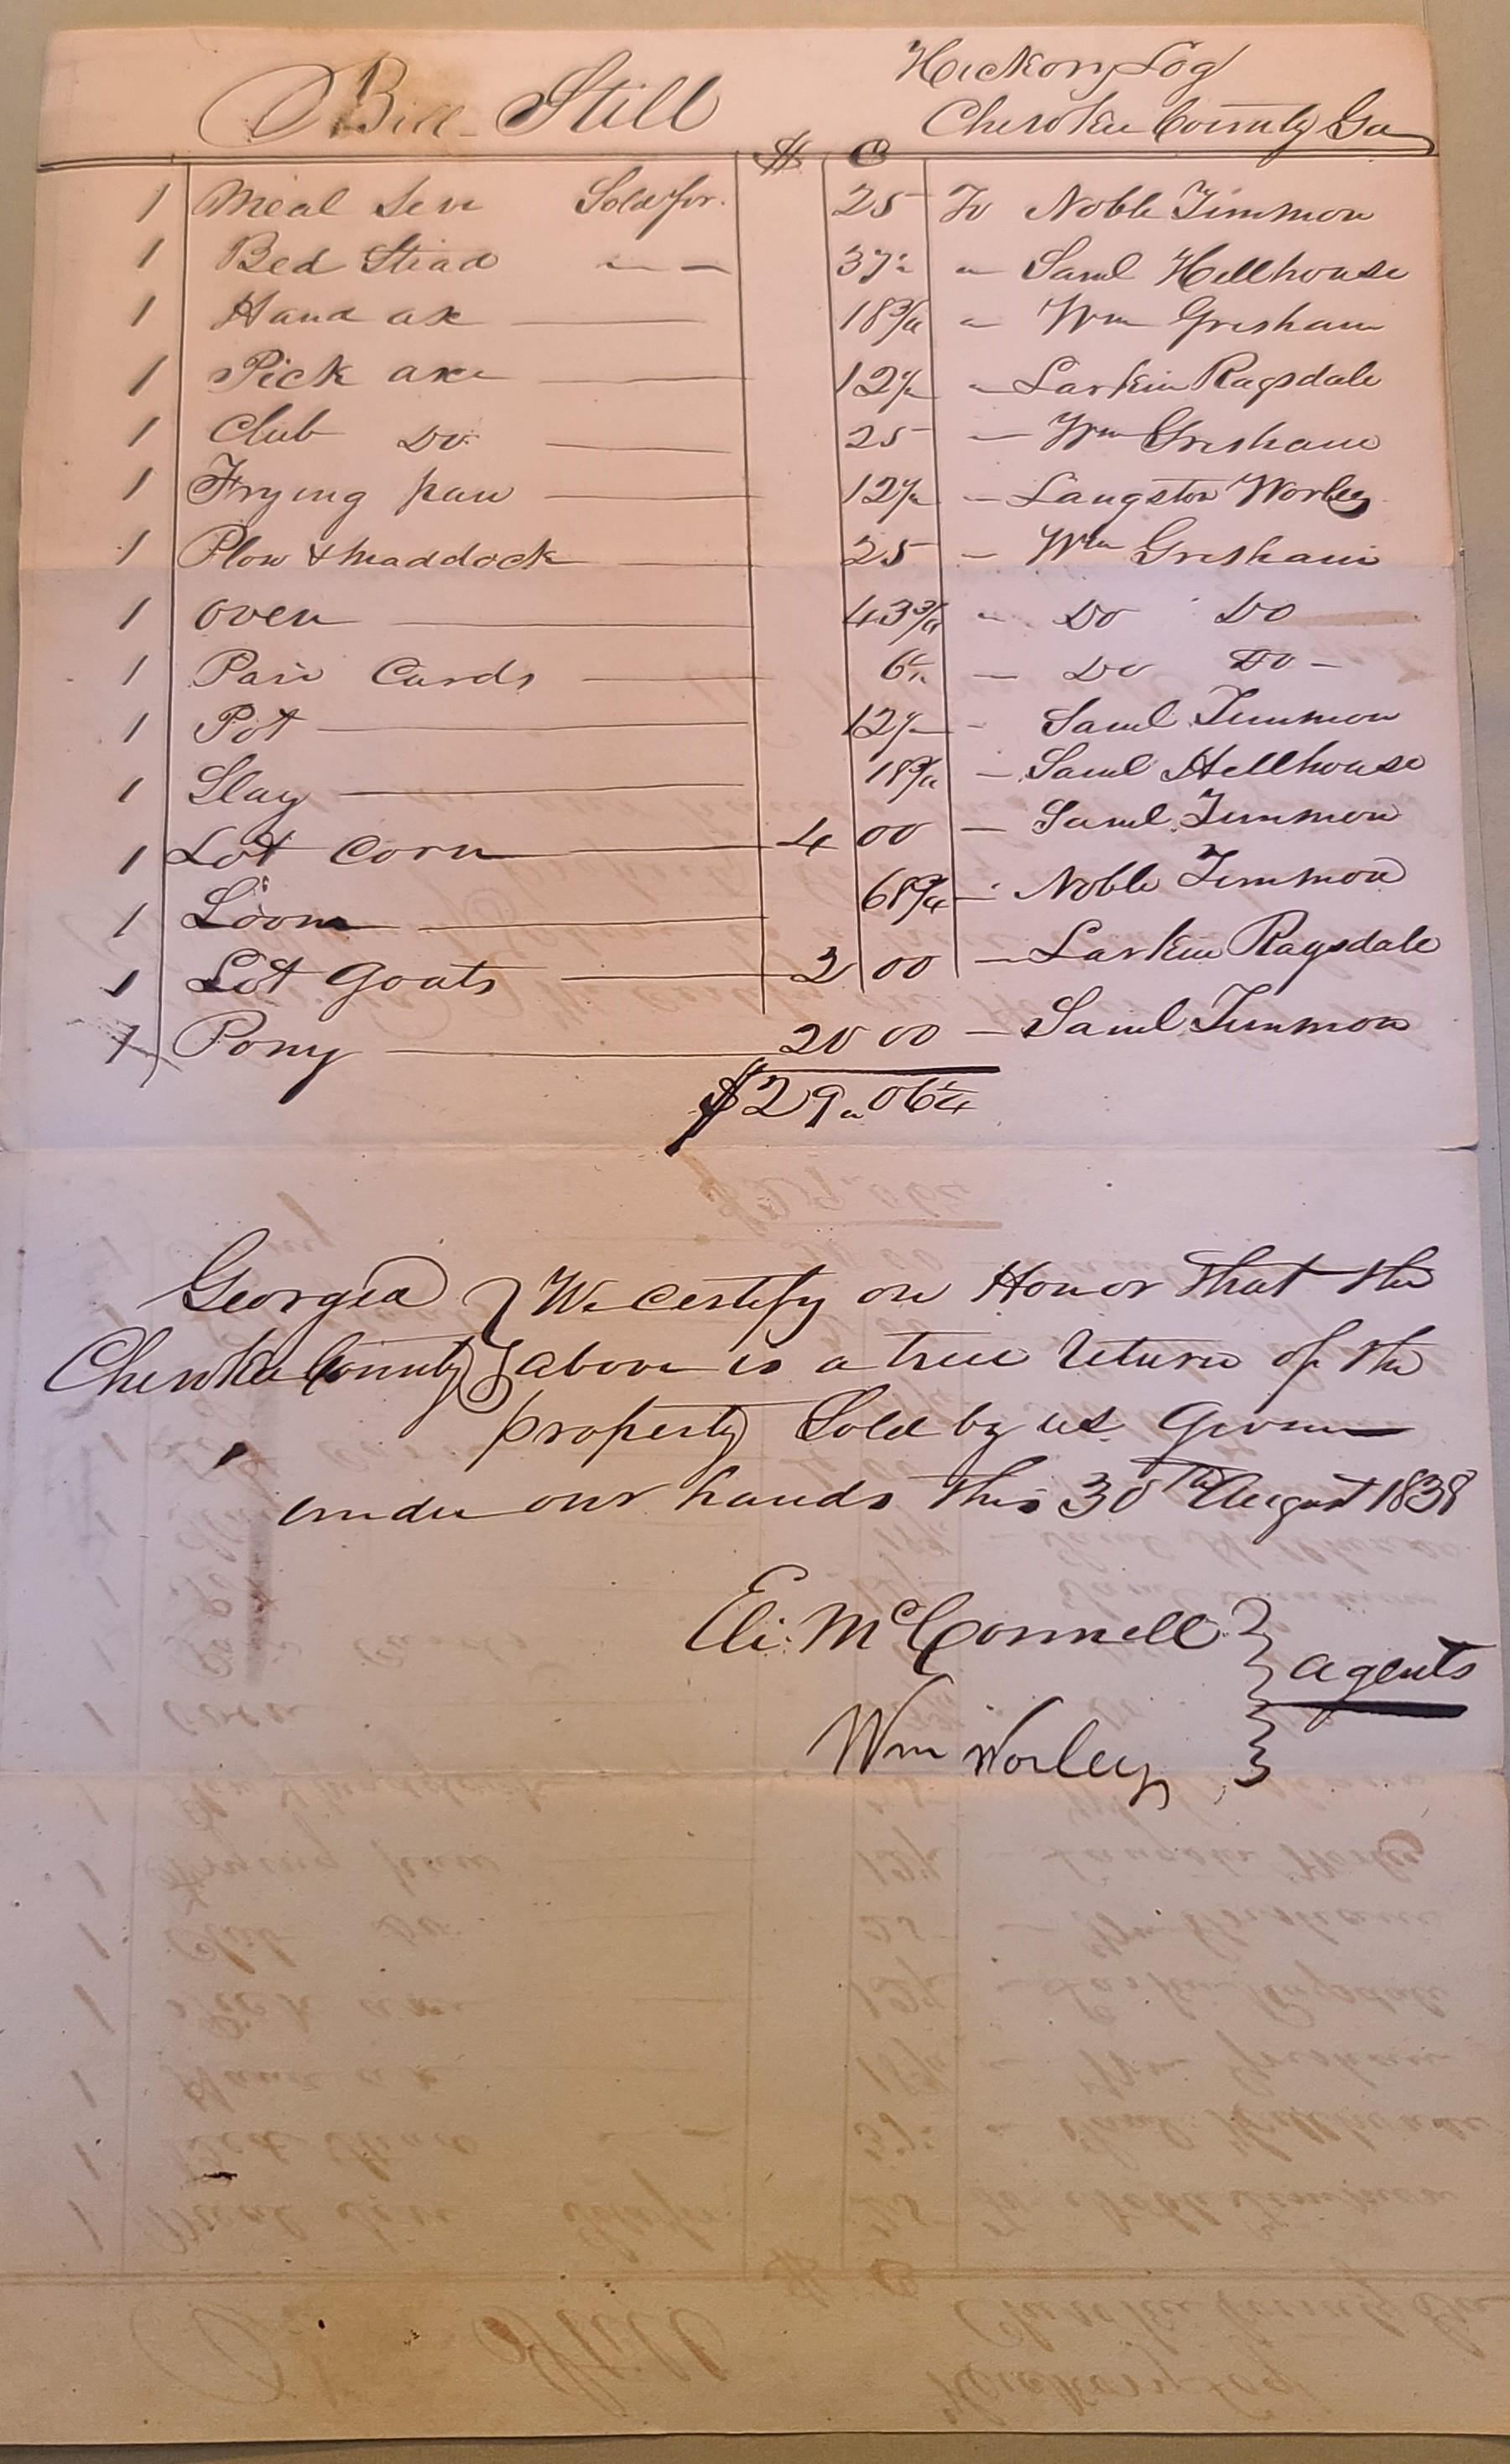 Bill Still
Hickory Log
Cherokee County Ga
$ C
1 Meal Seve Sold for. 25 To Noble Timmon
1 Bed Stead " — 37½ " Saml Hillhouse
1 Hand ax 18¾ " Wm Grisham
1 Pick axe 12½ " Larkin Ragsdale
1 Club Do 25 — Wm Grisham
1 Frying pan 12½ — Langston Worley
1 Plow & maddock 25 — Wm Grisham
1 oven 43¾ " Do Do
1 Pair Cards 6¼ — Do Do —
1 Pot 12½ - Saml Timmon
1 Slay 18¾ — Saml Hillhouse
1 Lot Corn 4 00 — Saml Timmon
1 Loom 68¾ — Noble Timmon
1 Lot Goats 2 00 — Larkin Ragsdale
1 Pony 20 00 — Saml Timmon
$29.06¼
Georgia } We certify on Honor that the
Cherokee County } above is a true return of the
property Sold by us Given
under our hands this 30th August 1838
Eli McConnell } agents
Wm Worley }